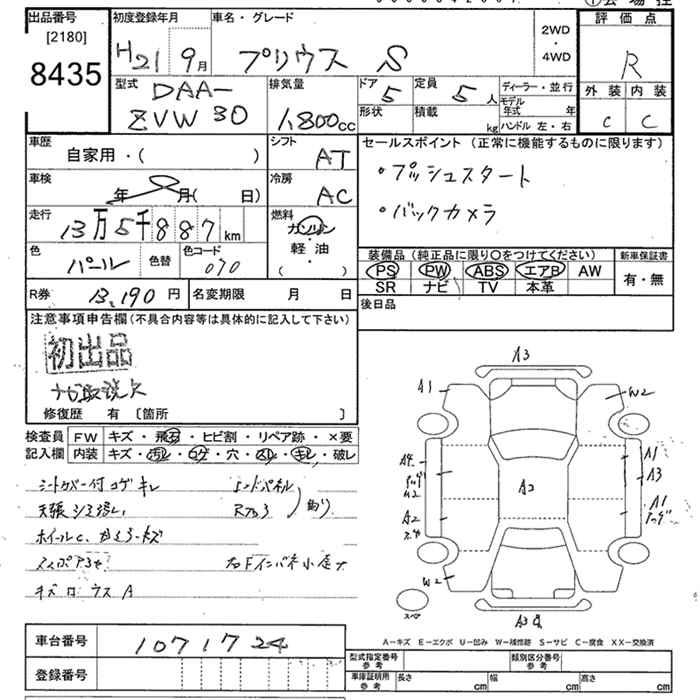 出品番号 [2180] 8435
初度登録年月 H21 9月
車名・グレード プリウス S
2WD ・ 4WD
評価点 R
外装 C 内装 C
型式 DAA- ZVW30
排気量 1,800cc
ドア 5 形状
定員 5人 積載 kg
ディーラー・並行
モデル年式 年
ハンドル 左・右
車歴 自家用・( )
シフト AT
車検 年 月( 日)
冷房 AC
走行 13万5千887km
燃料 ガソリン・軽油 ( )
色 パール 色替 色コード 070
R券 13,190円 名変期限 月 日
セールスポイント (正常に機能するものに限ります)
・プッシュスタート
・バックカメラ
装備品 (純正品に限り○をつけてください) 新車保証書
PS PW ABS エアB AW 有・無
SR ナビ TV 本革
後日品
注意事項申告欄(不具合内容等は具体的に記入して下さい)
初出品
ナビ取説欠
修復歴 有 〔箇所 〕
検査員記入欄 FW キズ・飛石・ヒビ割・リペア跡・×要
内装 キズ・汚レ・コゲ・穴・スレ・キレ・破レ
シートカバー付 コゲ キレ
天張シミ
ホイールC
キズ A
A3
A1 W2
A1
A3
A1
A2
A2
W2
スペア
A3
A-キズ E-エクボ U-凹み W-補修跡 S-サビ C-腐食 XX-交換済
車台番号 1071724
登録番号
型式指定番号 参考 類別区分番号 参考
車庫証明用 参考 長さ cm 幅 cm 高さ cm